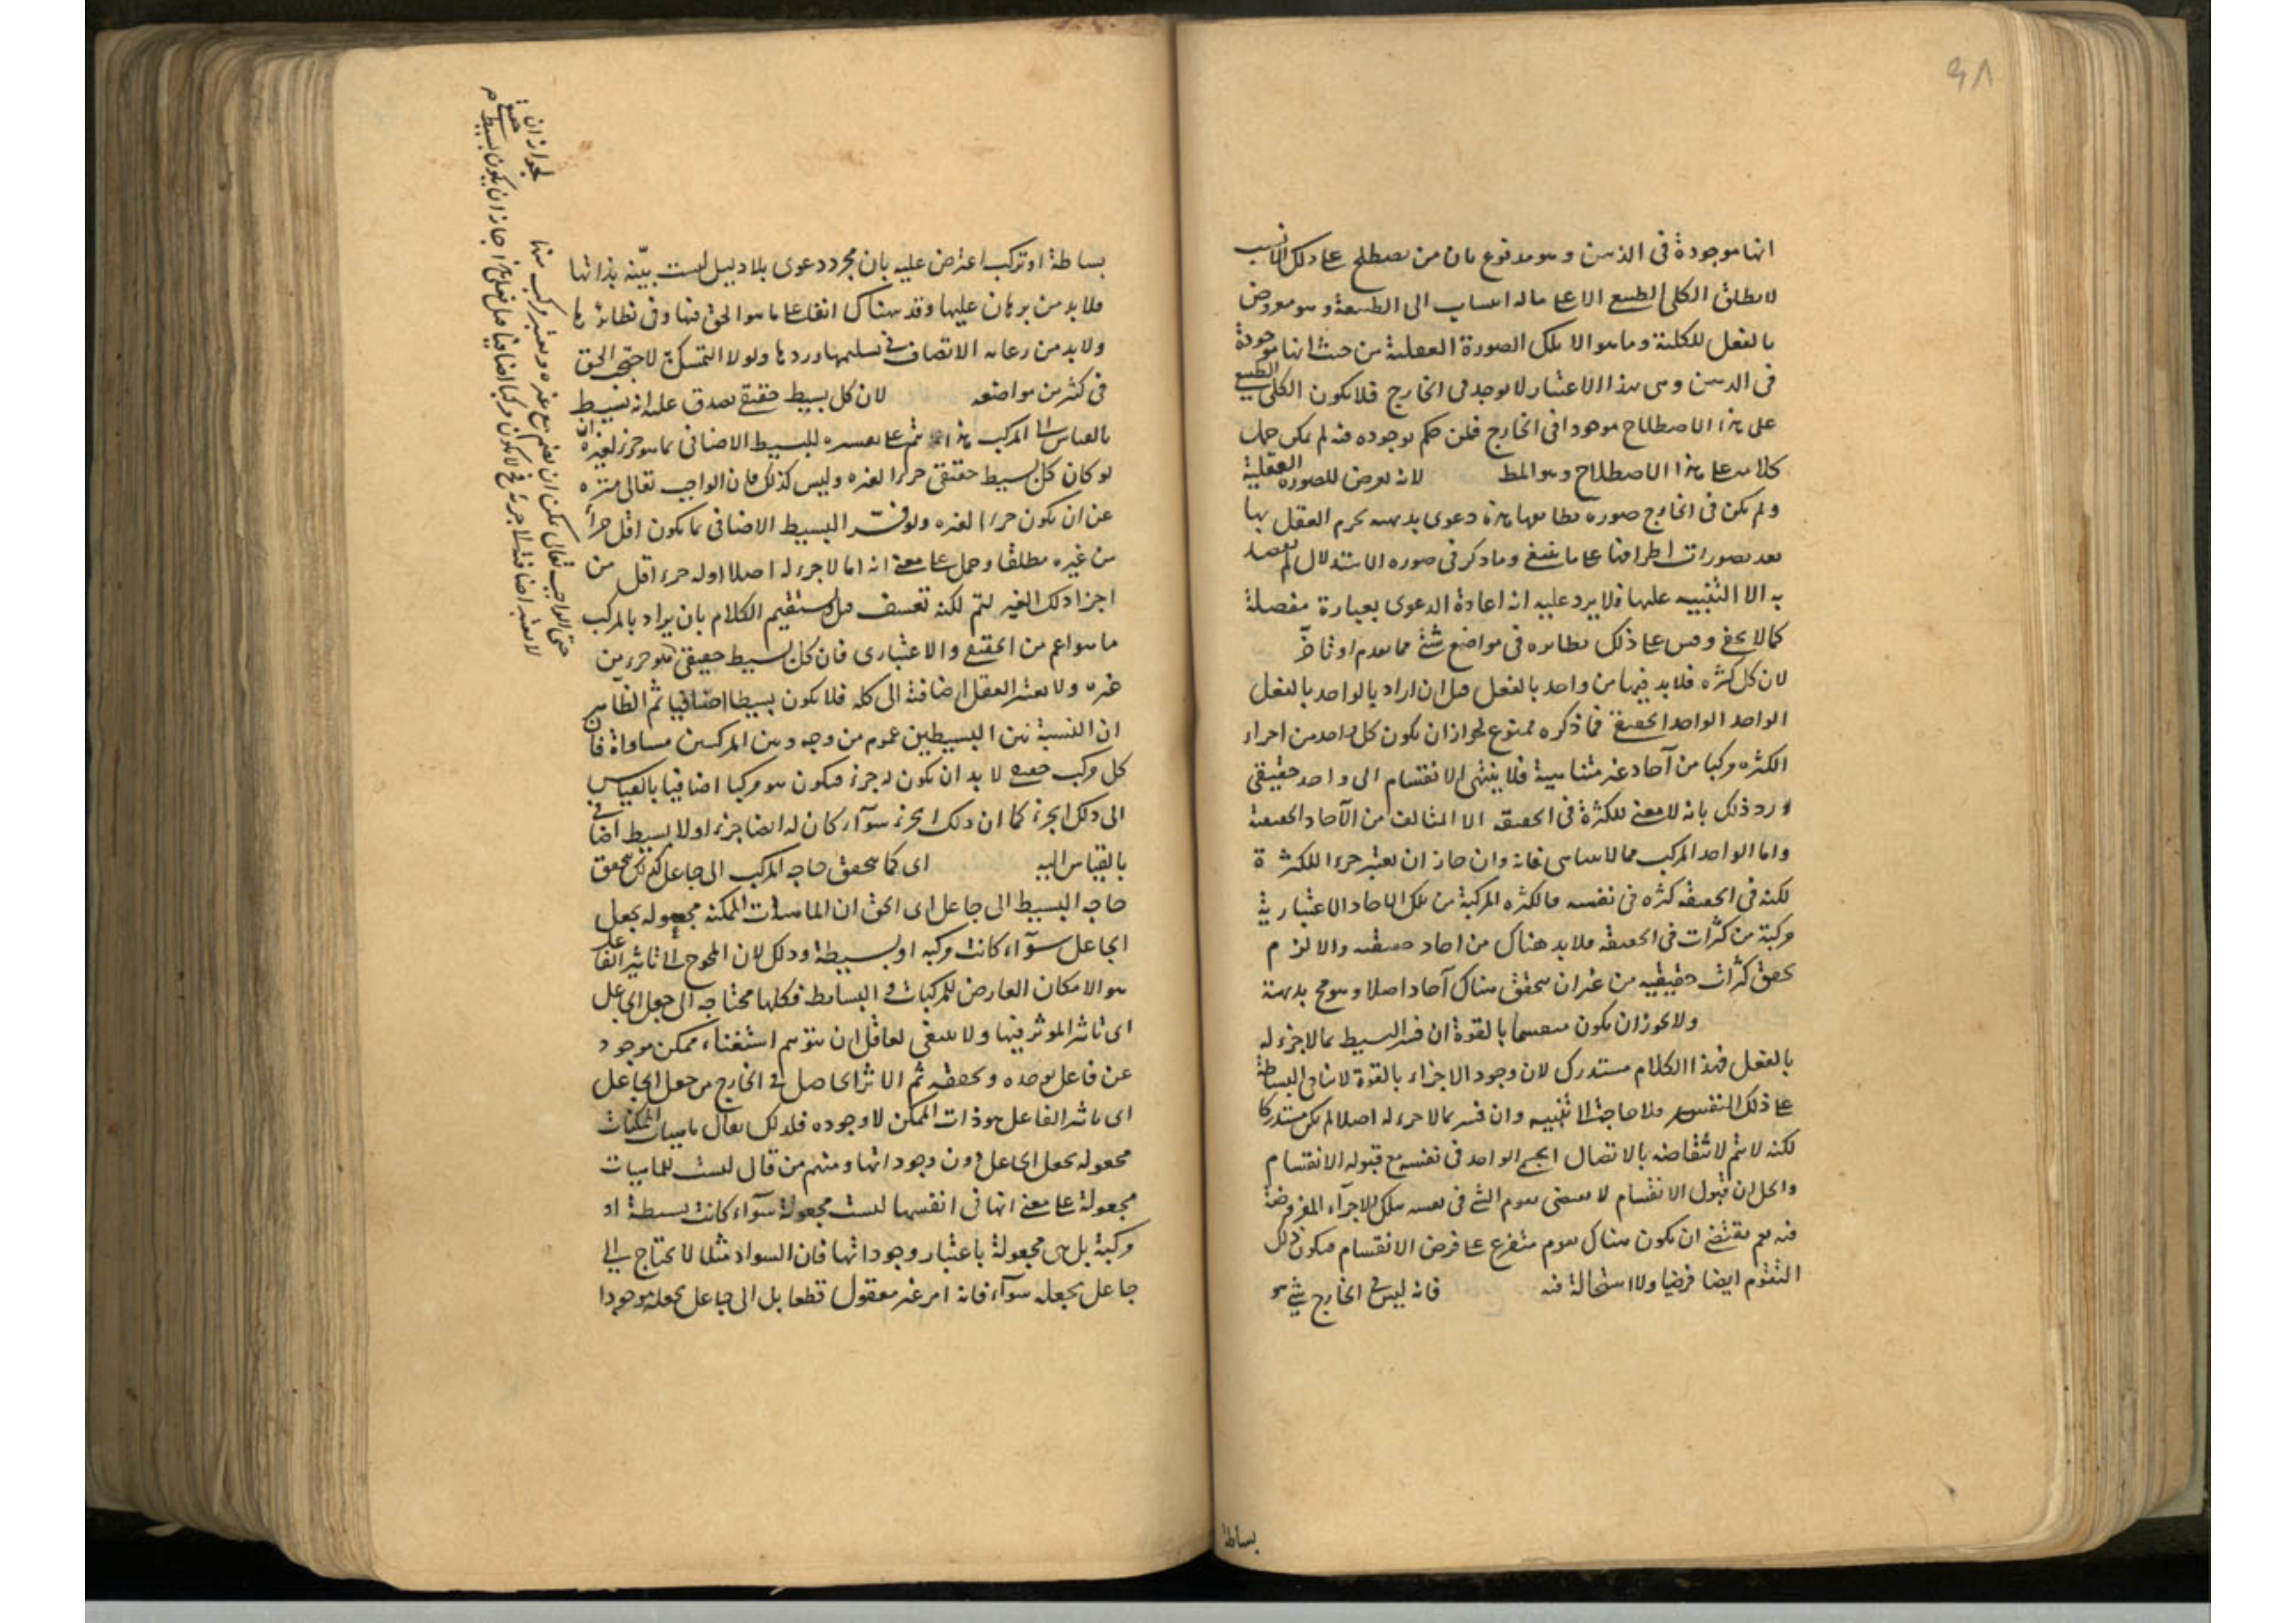 ٩٨
انها موجودة فى الذهن وهو مدفوع بان من يصطلح على ذلك الانسب
لا يطلق الكلى الطبيعى الا على ماله انتساب الى الطبيعة وهو معروض
بالفعل للكلية وما هو الا تلك الصورة العقلية من حيث انها موجودة
فى الذهن وهى بهذا الاعتبار لا يوجد فى الخارج فلا يكون الكلى الطبيعى
على هذا الاصطلاح موجودا فى الخارج فمن حكم بوجوده فيه لم يكن حمل
كلامه على هذا الاصطلاح وهو المط لانه يعرض للصورة العقلية
ولم يكن فى الخارج صورة تطابقها هذه دعوى بديهية يجزم العقل بها
بعد تصورات اطرافها على ما ينبغى وما ذكر فى صورة الاستدلال لم يقصد
به الا التنبيه عليها فلا يرد عليه انه اعادة الدعوى بعبارة مفصلة
كما لا يخفى وقس على ذلك نظائره فى مواضع شتى مما تقدم او تأخر
لان كل كثرة فلا بد فيها من واحد بالفعل قيل ان اراد بالواحد بالفعل
الواحد الواحد الحقيقى فما ذكره ممنوع لجواز ان يكون كل واحد من اجزاء
الكثرة مركبا من آحاد غير متناهية فلا ينتهى الانقسام الى واحد حقيقى
ورد ذلك بانه لا معنى للكثرة فى الحقيقة الا المتالف من الآحاد الحقيقية
واما الواحد المركب مما لا يتناهى فانه وان جاز ان يعتبر جزءا للكثرة
لكنه فى الحقيقة كثرة فى نفسه فالكثرة المركبة من تلك الآحاد الاعتبارية
مركبة من كثرات فى الحقيقة فلا بد هناك من احاد حقيقية والا لزم
تحقق كثرات حقيقية من غير ان يتحقق هناك آحاد اصلا وهو مح بديهة
ولا يجوز ان يكون منقسما بالقوة ان فسر البسيط بما لا جزء له
بالفعل فهذا الكلام مستدرك لان وجود الاجزاء بالقوة لا ينافى البساطة
على ذلك التفسير فلا حاجة الى تنبيه وان فسر بما لا جزء له اصلا لم يكن مستدركا
لكنه لا يتم لانتقاضه بالاتصال الجسمى الواحد فى نفسه مع قبوله الانقسام
والحل ان قبول الانقسام لا يقتضى تقوم الشئ فى نفسه بتلك الاجزاء المفروضة
فيه نعم يقتضى ان يكون هناك تقوم متفرع على فرض الانقسام فيكون ذلك
التقوم ايضا فرضيا ولا استحالة فيه فانه ليس فى الخارج شئ هو
بساطة
بساطة او تركب اعترض عليه بان مجرد دعوى بلا دليل ليست بيّنة بذاتها
فلا بد من برهان عليها وقد نبهناك انفا على ما هو الحق فيها وفى نظائرها
ولا بد من رعاية الانصاف فى تسليمها وردها ولولا التمسك به لاختفى الحق
فى كثير من مواضعه لان كل بسيط حقيقى يصدق عليه انه بسيط
بالقياس الى المركب هذا انما يتم على تفسيره للبسيط الاضافى بما هو جزء لغيره ان
لو كان كل بسيط حقيقى جزءا لغيره وليس كذلك فان الواجب تعالى منزه
عن ان يكون جزءا لغيره ولو فسّر البسيط الاضافى بما يكون اقل جزأ
من غيره مطلقا وحمل على معنى انه اما لا جزء له اصلا او له جزء اقل من
اجزاء ذلك الغير لتم لكنه تعسف قيل يستقيم الكلام بان يراد بالمركب
ما هو اعم من الحقيقى والاعتبارى فان كل بسيط حقيقى هو جزء من
غيره ولا يعتبر العقل اضافته الى كله فلا يكون بسيطا اضافيا ثم الظاهر
ان النسبة بين البسيطين عموم من وجه وبين المركبين مساواة فان
كل مركب حقيقى لا بد ان يكون له جزء فيكون هو مركبا اضافيا بالقياس
الى ذلك الجزء كما ان ذلك الجزء سوآء كان له ايضا جزء او لا بسيط اضافى
بالقياس اليه اى كما يتحقق حاجة المركب الى جاعل كذلك يتحقق
حاجة البسيط الى جاعل اى الحق ان الماهيات الممكنة مجعولة بجعل
الجاعل سوآء كانت مركبة او بسيطة وذلك لان المحوج الى تاثير الفاعل
هو الامكان العارض للمركبات والبسائط فكلها محتاجة الى جعل الجاعل
اى تاثير المؤثر فيها ولا ينبغى لعاقل ان يتوهم استغناء ممكن موجود
عن فاعل يوجده ويحققه ثم الاثر الحاصل فى الخارج من جعل الجاعل
اى تاثير الفاعل هو ذات الممكن لا وجوده فلذلك يقال ماهيات الممكنات
مجعولة بجعل الجاعل دون وجوداتها ومنهم من قال ليست الماهيات
مجعولة على معنى انها فى انفسها ليست مجعولة سوآء كانت بسيطة او
مركبة بل هى مجعولة باعتبار وجوداتها فان السواد مثلا لا يحتاج الى
جاعل يجعله سوآء فانه امر غير معقول قطعا بل الى جاعل يجعله موجودا
لجواز ان
حتى الواجب تعالى يمكن ان يضم مع غيره ويعتبر مركب منها
لا يعتبر اضافته الى جزئه فح لا يكون مركبا اضافيا
جاز ان يكون بسيط حقيقى